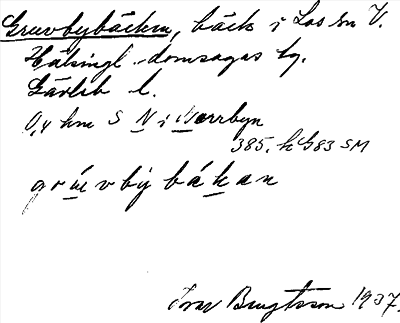 Gruvbybäcken, bäck i Los sn V.
Hälsingl. domsagas tg.
Gävleb. l.
0,4 km S N i Norrbyn
385. h 683 SM
gruvbýbäkan
Ivar Bengtsson 1937.